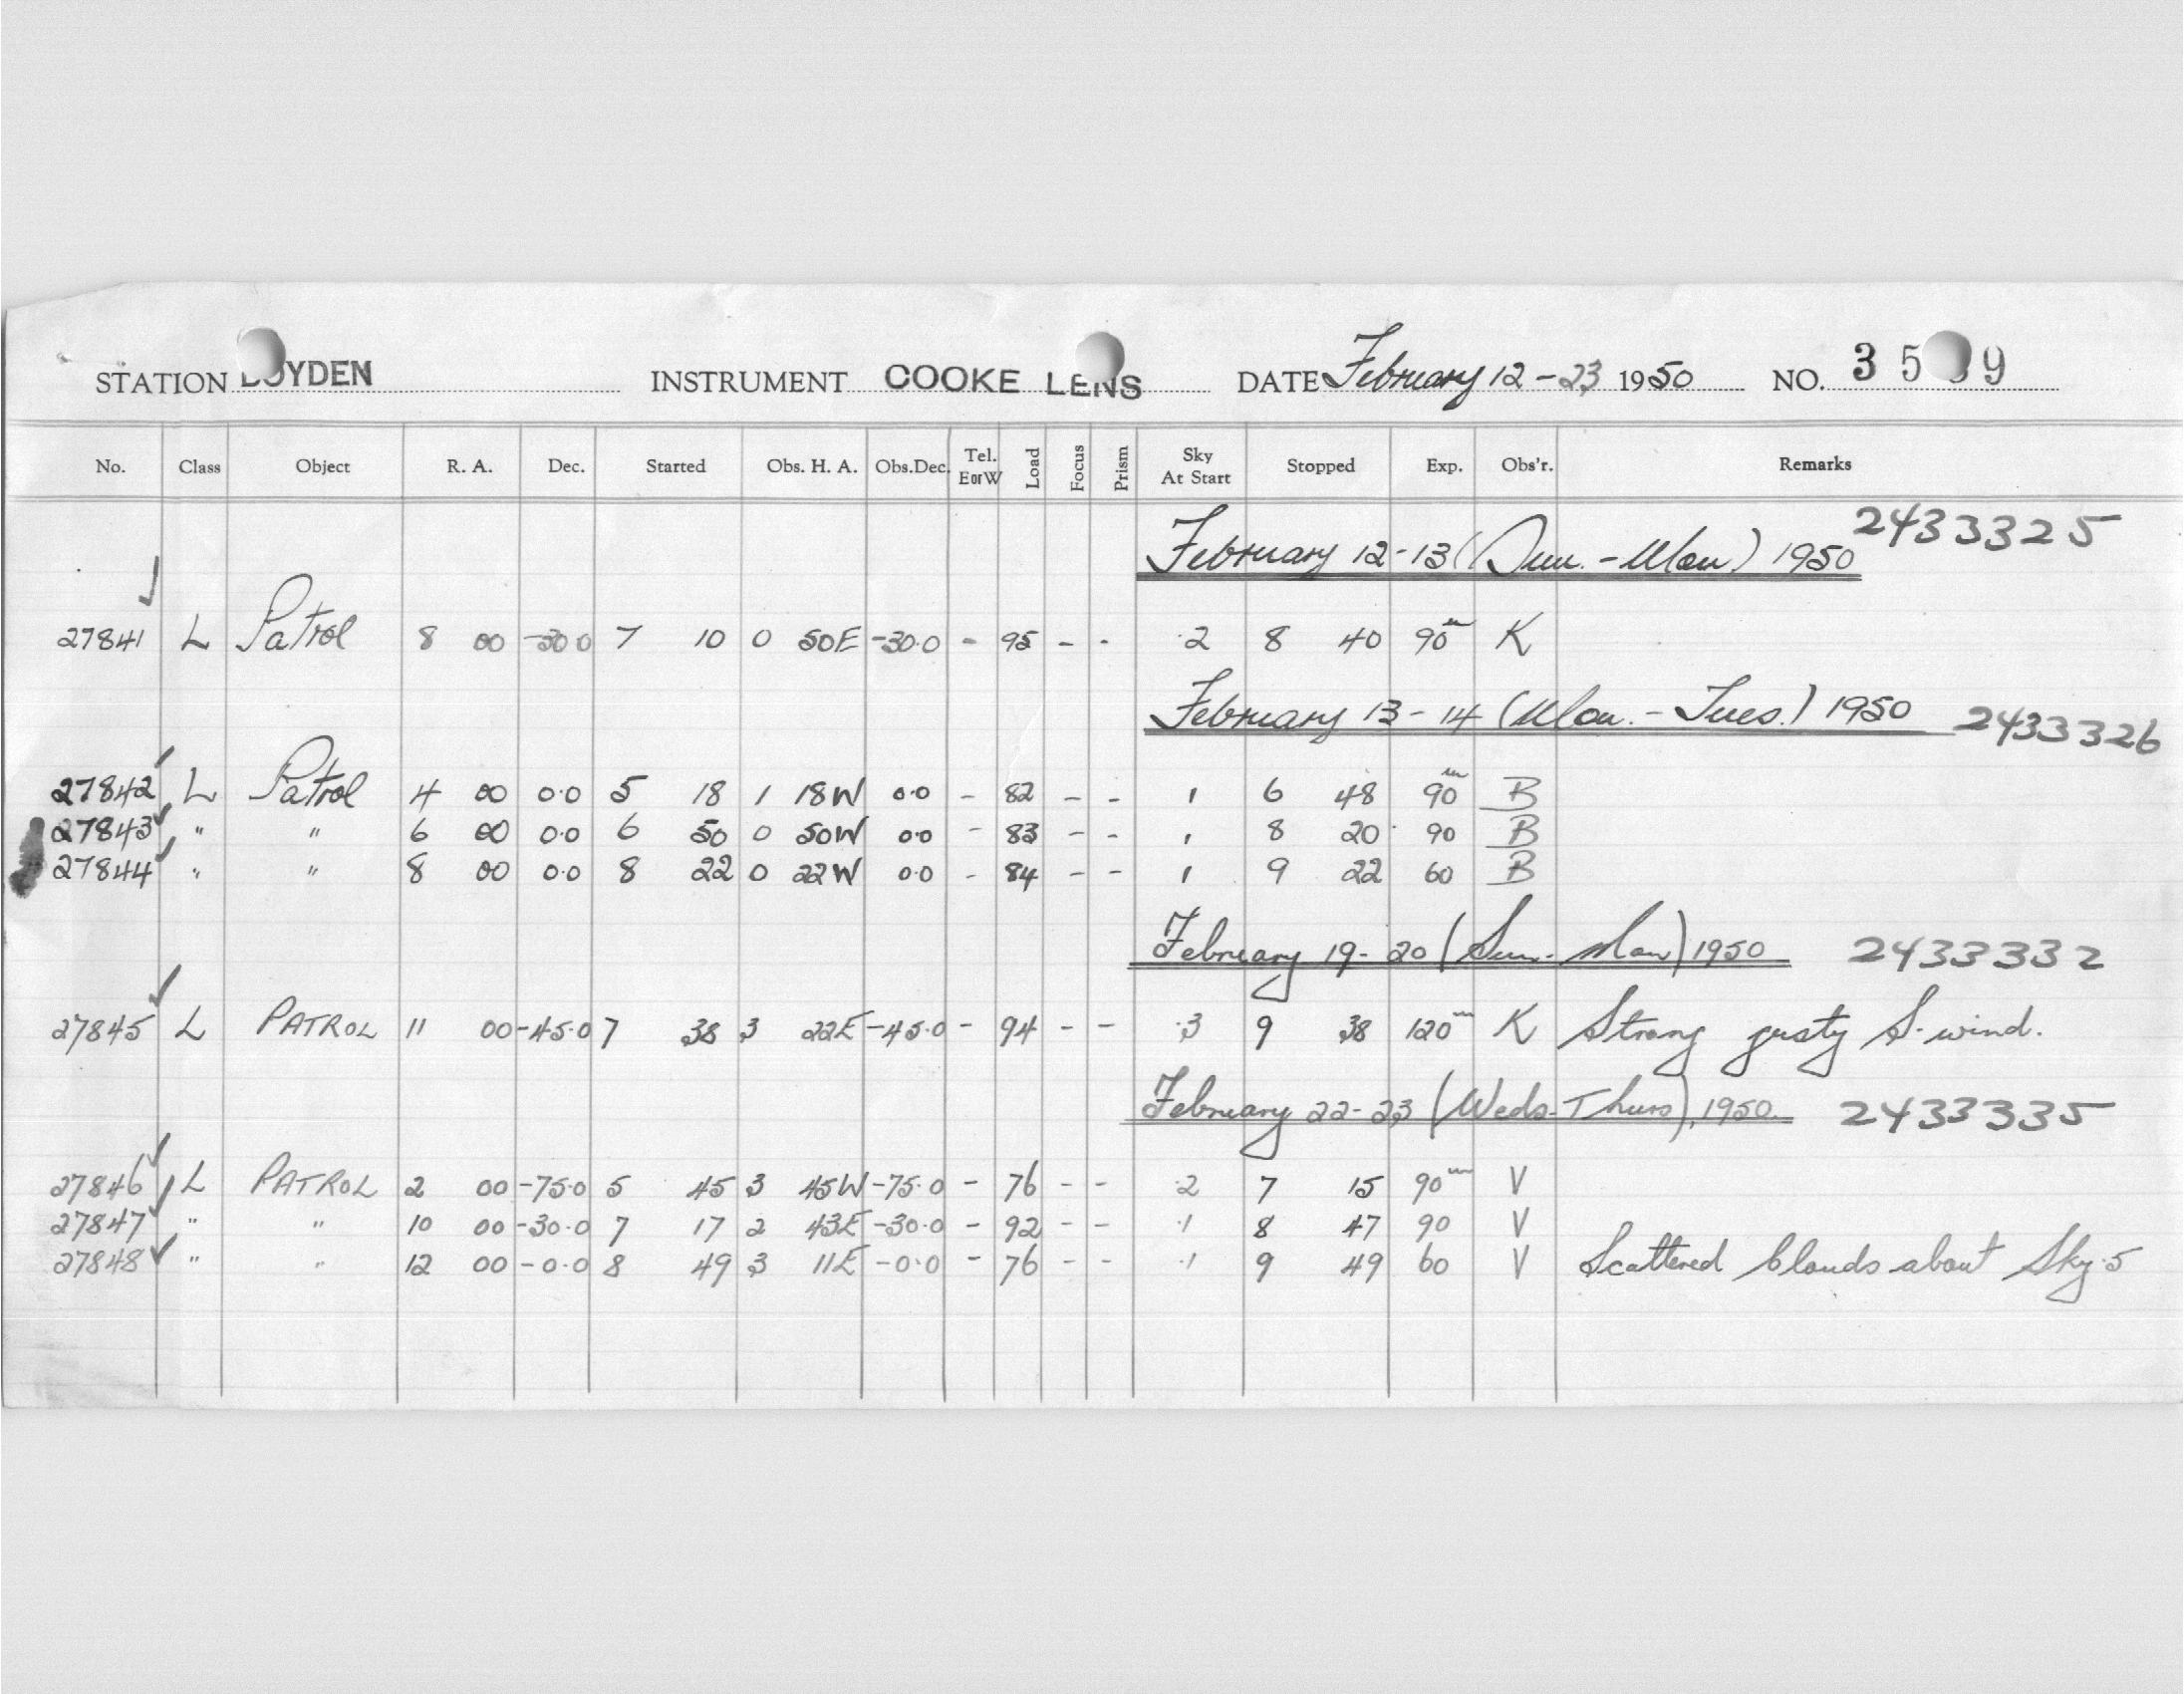 STATION BOYDEN INSTRUMENT COOKE LENS DATE February 12-23 1950 NO. 35 9
No. Class Object R. A. Dec. Started Obs. H. A. Obs.Dec. Tel. E or W Load Focus Prism Sky At Start Stopped Exp. Obs'r. Remarks
February 12-13 (Sun.-Mon) 1950 2433325
27841 L Patrol 8 00 -30 0 7 10 0 50E -30.0 - 95 - - .2 8 40 90m K
February 13-14 (Mon.-Tues.) 1950 2433326
27842 L Patrol 4 00 0.0 5 18 1 18W 0.0 - 82 - - 1 6 48 90m B
27843 " " 6 00 0.0 6 50 0 50W 0.0 - 83 - - 1 8 20 90 B
27844 " " 8 00 0.0 8 22 0 22W 0.0 - 84 - - 1 9 22 60 B
February 19-20 (Sun.-Mon) 1950 2433332
27845 L PATROL 11 00 -45.0 7 38 3 22E -45.0 - 94 - - .3 9 38 120m K Strong gusty S. wind.
February 22-23 (Weds-Thurs), 1950. 2433335
27846 L PATROL 2 00 -75.0 5 45 3 45W -75.0 - 76 - - .2 7 15 90m V
27847 " " 10 00 -30.0 7 17 2 43E -30.0 - 92 - - .1 8 47 90 V
27848 " " 12 00 -0.0 8 49 3 11E -0.0 - 76 - - .1 9 49 60 V Scattered clouds about Sky .5